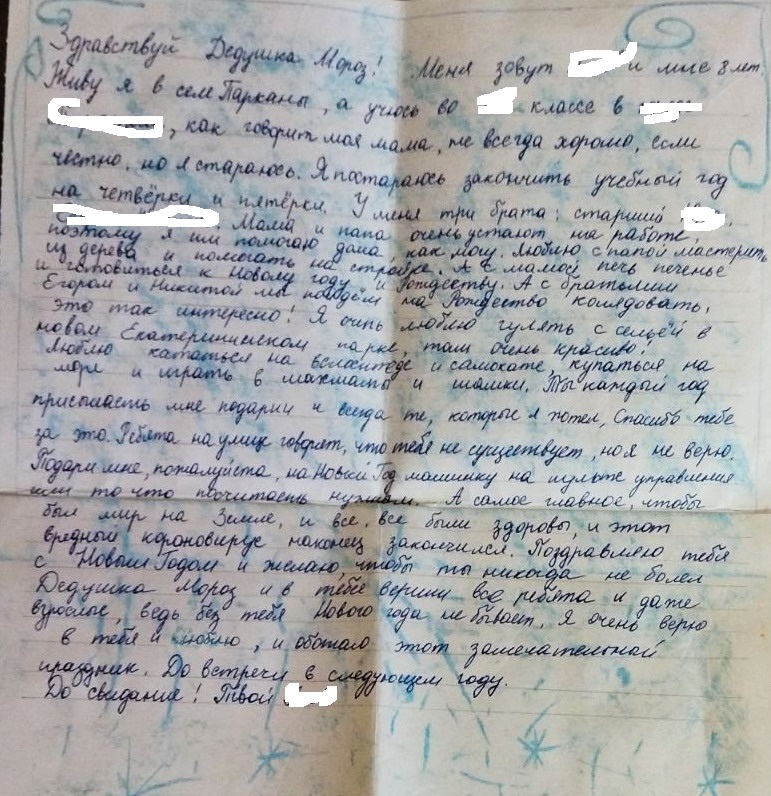 Здравствуй Дедушка Мороз! Меня зовут и мне 8 лет.
Живу я в селе Парканы, а учусь во классе в
, как говорит моя мама, не всегда хорошо, если
честно, но я стараюсь. Я постараюсь закончить учебный год
на четвёрки и пятёрки. У меня три брата: старший
. Мама и папа очень устают на работе,
поэтому я им помогаю дома, как могу. Люблю с папой мастерить
из дерева и помогать на стройке. А с мамой печь печенье
и готовиться к Новому году и Рождеству. А с братьями
Егором и Никитой мы пойдём на Рождество колядовать,
это так интересно! Я очень люблю гулять с семьёй в
новом Екатерининском парке, там очень красиво!
Люблю кататься на велосипеде и самокате, купаться на
море и играть в шахматы и шашки. Ты каждый год
присылаешь мне подарки и всегда те, которые я хотел, Спасибо тебе
за это. Ребята на улице говорят, что тебя не существует, но я не верю.
Подари мне, пожалуйста, на Новый Год машинку на пульте управления
или то что посчитаешь нужным. А самое главное, чтобы
был мир на Земле, и все, все были здоровы, и этот
вредный короновирус наконец закончился. Поздравляю тебя
с Новым Годом и желаю, чтобы ты никогда не болел
Дедушка Мороз и в тебя верили все ребята и даже
взрослые, ведь без тебя Нового года не бывает. Я очень верю
в тебя и люблю, и обожаю этот замечательный
праздник. До встречи в следующем году.
До свидания! Твой